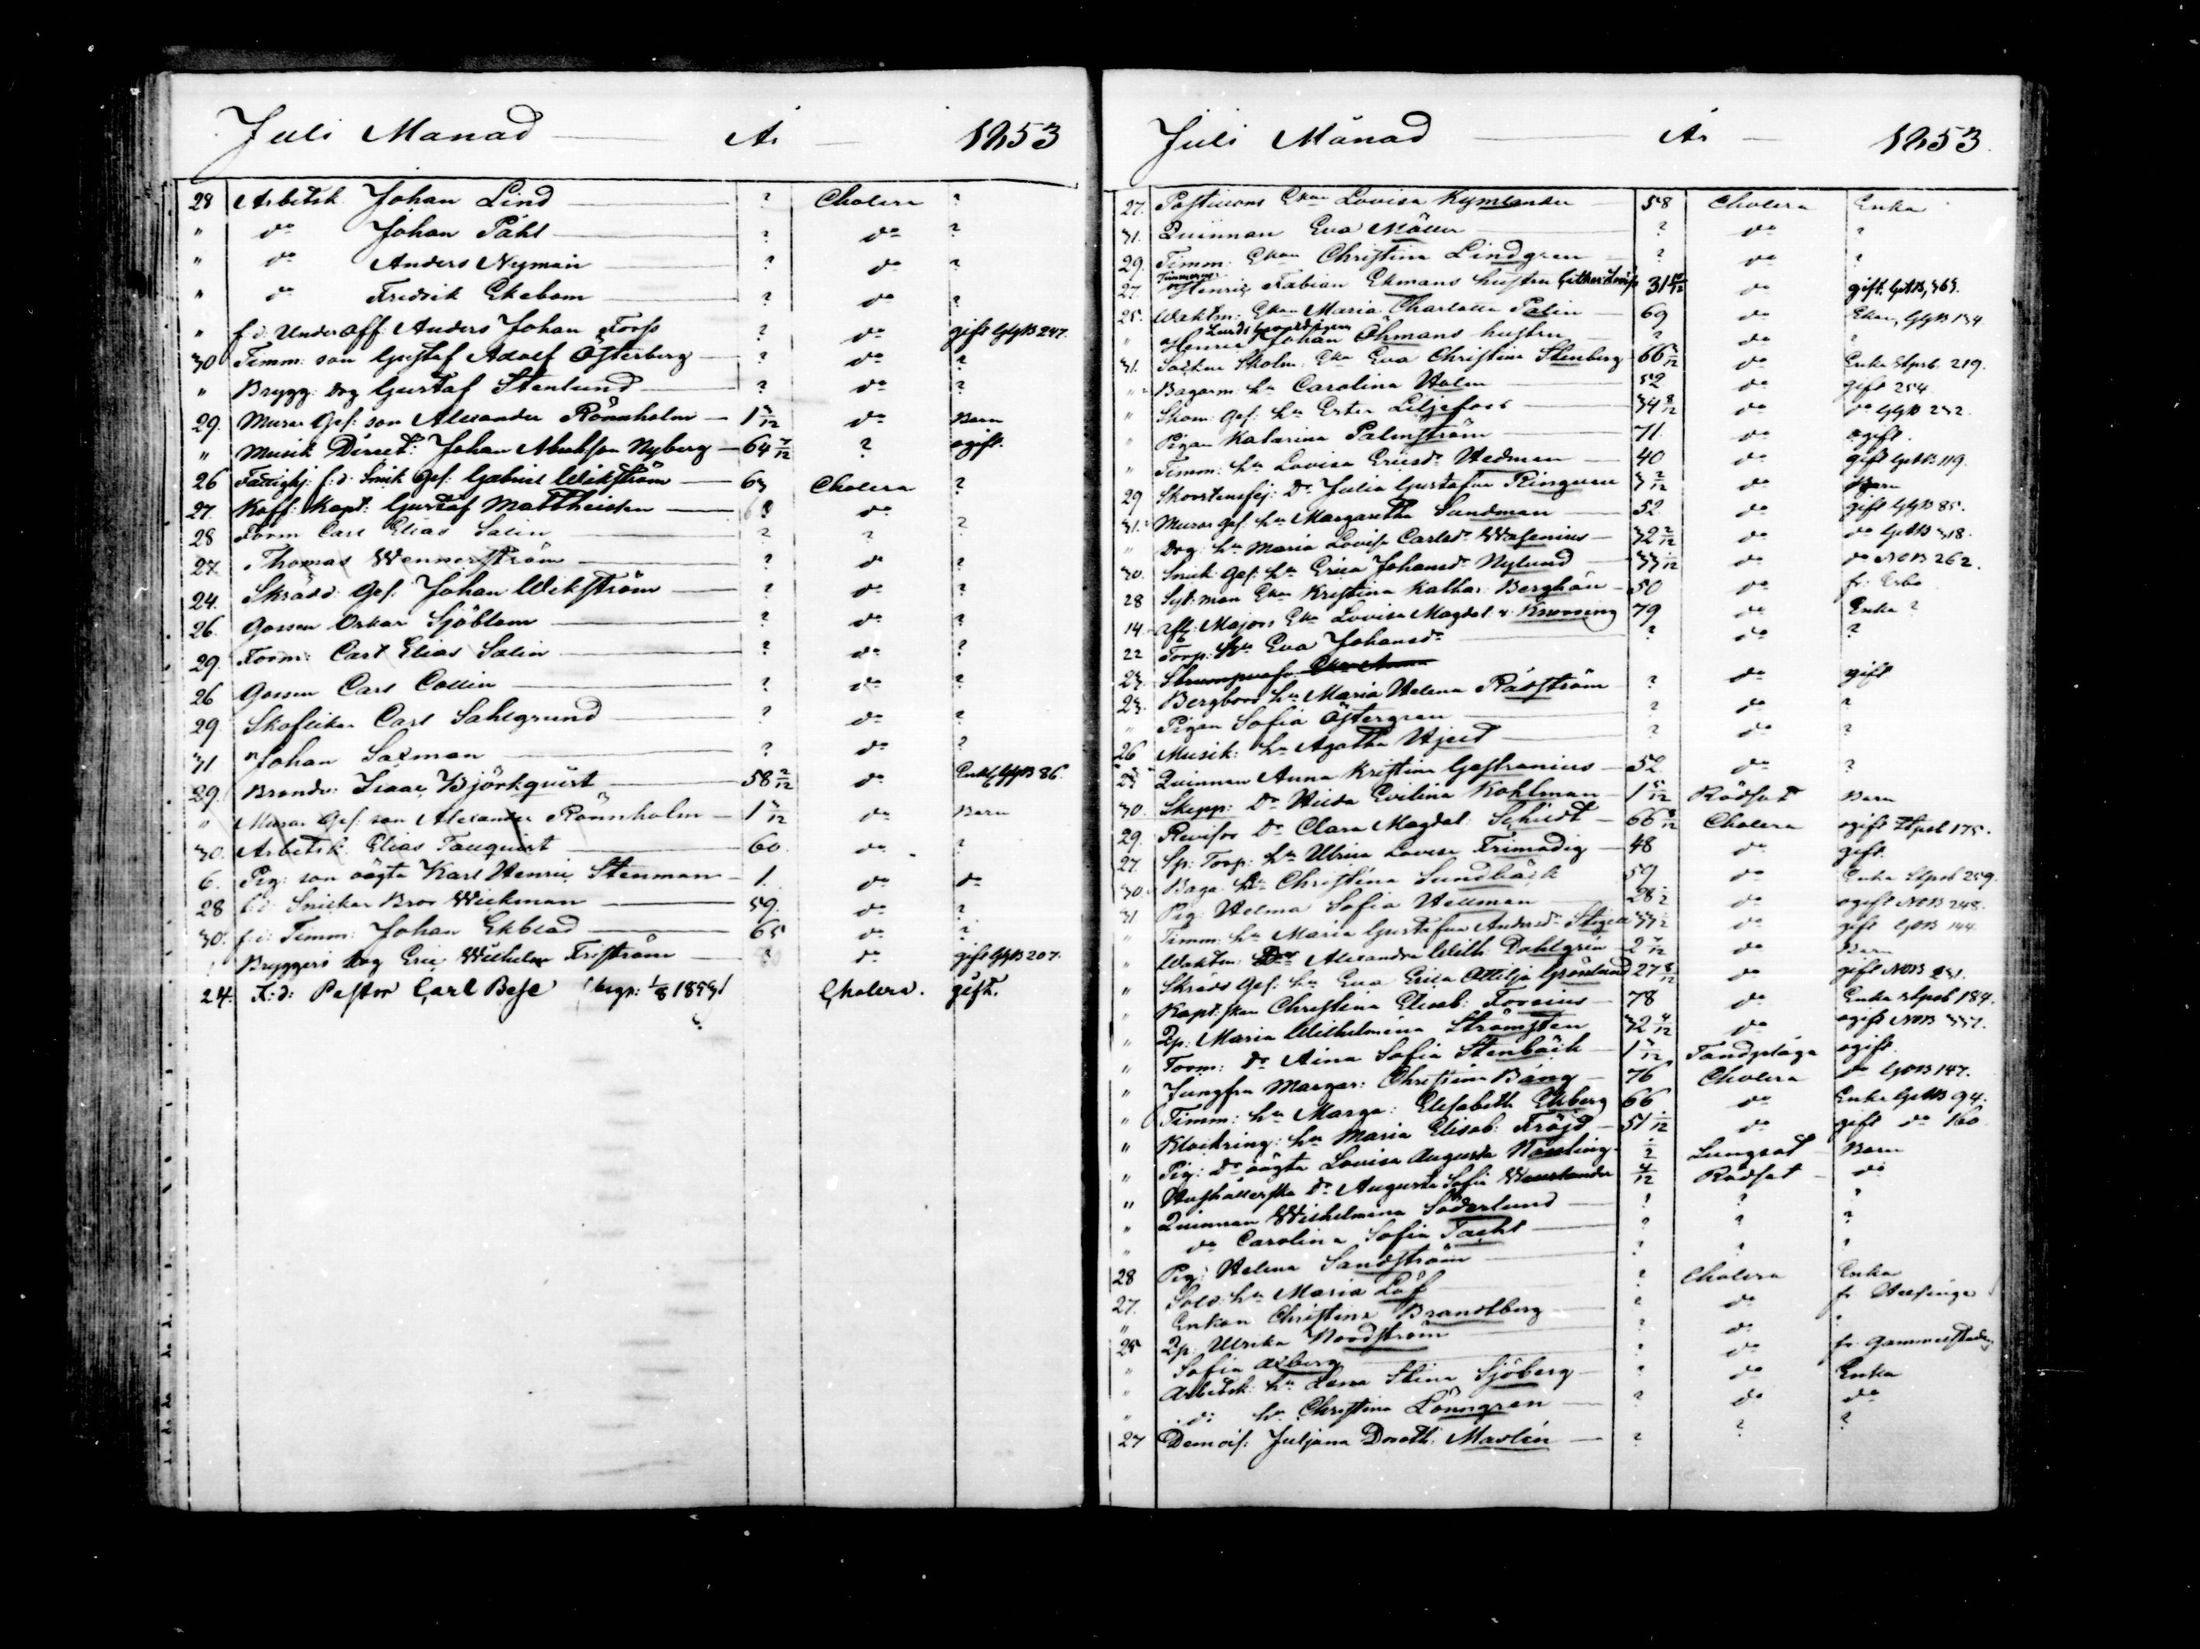 Juli Månad År 1853
28 Arbetsk. Johan Lind ? Cholera ?
" do Johan Påhl ? do ?
" do Anders Nyman ? do ?
" do Fredrik Ekebom ? do ?
" f.d. Under Off: Anders Johan Forss ? do gift GGB 247.
30 Timm: son Gustaf Adolf Österberg ? do ?
" Brygg: drg Gustaf Stenlund ? do ?
29. Murar Gef: son Alexander Rönnholm 1 3/12 do Barn
" Musik Direct: Johan Nyberg 64 7/12 ? ogift.
26 Fattighj: f:d: Snick Gef: Gabriel Wikström 63 Cholera ?
27. Koff: Kapt: Gustaf Mattheiszen do ?
28 Form Carl Elias Salin ? ? ?
27 Thomas Wennerström ? do ?
24. Skrädd: Gef: Johan Wikström ? do ?
26. Gossen Oskar Sjöblom ? do ?
29. Form: Carl Elias Salin ? do ?
26 Gossen Carl Collin ? do ?
29. Skoflickar Carl Sahlgrund ? do ?
31 Johan Saxman ? do ?
29. Brandv: Isaac Björkqvist 58 2/12 do Enkl GGB 86.
" Murar Gef: son Alexander Rönnholm 1 3/12 do Barn
30. Arbetsk. Elias Tauquist 60. do ?
6. Pig: son oägta Karl Henric Stenman 1. do do
28 f.d: Snickar Bror Wickman 59. do ?
30. f.d: Timm: Johan Ekblad 65 do ?
Bryggeri drg Eric Wilhelm Friström do gift GGB 207.
24. F:d: Pastor Carl Bese (begr: 1/8 1853) Cholera. gift.
Juli Månad År 1853.
27. Postilions Ekan Lovisa Kymlander 58 Cholera Enka
31. Quinnan Eva Möller ? do ?
29. Timm: Ekan Christina Lindgren ? do ?
27. Timmerm: Henric Fabian Ekmans hustru 31 10/12 do gift.
25. Waktm: Ekan Maria Charlotta Palin 69 do Ekan, GGB 134
" Henric Johan Öhmans hustru ? do ?
31. Skolm: Eka Eva Christina Stenberg 66 do Enka Stpsb 219.
" Bagarm: hu Carolina Holm 52 do gift 254.
" Skom: Gef: hu Ester Liljefors 34 8/12 do do GGB 232.
" Pigan Katarina Palmström 71. do ogift.
" Timm: hu Lovisa Ericsdr Hedman 40 do gift GAB 119.
29 Skorstensfej: Dr Julia Gustafva Ringman 3 2/12 do Barn
31. Murar Gef. hu Margaretha Sundman 52 do gift GGB 85.
" Drg. hu Maria Lovisa Carlsdr Wasenius 32 2/12 do do GAB 318.
30. Snick: Gef: hu Erica Johansdr Nylund 33 /12 do do NOB 262.
28 Syl: man Ekan Kristina Kathar: Berghän 50 do fr: Esbo
14. Aff: Majors Eka Lovisa Magdal: v: Knorring 79 do Enka ?
22 Torp: hu Eva Johansdr ? do ?
23. Bergbors hu Maria Helena Rådström ? do gift
" Pigan Sofia Östergren ? do ?
26 Musik: hu Agatha Hjelt ? do ?
23 Quinnan Anna Kristina Gestranius 52 do ?
30. Skepp: Dr Hilda Evelina Kohlman 1 5/12 Rödsot Barn
29. Revisor Dr Clara Magdal: Schildt 66 8/12 Cholera ogift Stpsb 175.
27. Sp: Torp: hu Ulrica Lovisa Frimodig 48 do gift.
30. Baga: hu Christina Sundbäck 59 do Enka Stpsb 259.
31 Pig: Helma Sofia Hellman 28 do ogift NOB 248.
" Timm: hu Maria Gustafva Andersdr 33 do gift GOB 144.
" Waktm: Dr Alexandra Wilh: Dahlgrén 2 7/12 do Barn
" Skräds Gef: hu Eva Erica Ottilia Grönlund 27 8/12 do gift NOB 231.
" Kapt: Ekan Christina Elisab: Forsius 78 do Enka Stpsb 184.
" Qp: Maria Wilhelmina Strömsten 32 4/12 do ogift NOB 337.
" Form: Dr Aina Sofia Stenbäck 1 3/12 Tandplåga ogift
" Jungfru Margar: Christina Bång 76 Cholera do GOB 147.
" Timm: hu Marga: Elisabeth Ekberg 66 do Enka GAB 94.
" Klockring: hu Maria Elisab: Fröjd 51 /12 do gift do 160
" Pig: Dr oägta Lovisa Augusta Nordling Lungsot Barn
" Hushållerska Dr Augusta Sofia 4/12 Rödsot do
" Quinnan Wilhelmina Söderlund ? ? ?
" do Carolina Sofia Tackt ? ? ?
28 Pig: Helena Sandström ? ? ?
27. Sold: hu Maria Löf ? Cholera Enka
" Enkan Christina Brandtberg ? do fr Helsinge
25 Qp: Ulrika Nordström ? do ?
" Sofia Alberg ? do fr: Gammelstaden
" Arbetsk: hu Lena Stina Sjöberg ? do Enka
" do hu Christina Lönngren ? do do
27 Demois: Juljana Doroth: Maslin ? ? ?